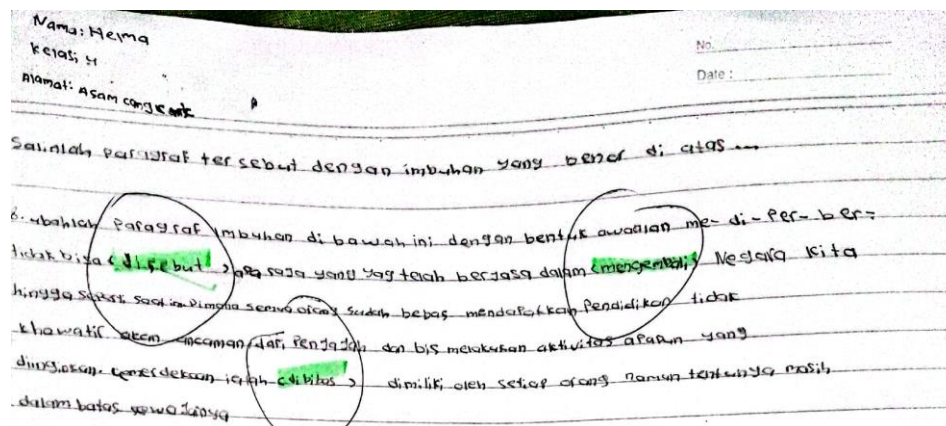 Nama: Helma
Kelas:
Alamat: Asam
No.
Date :
Salinlah paragraf ter sebut dengan imbuhan yang benar di atas ...
8. ubahlah Paragraf imbuhan di bawah ini dengan bentuk awaalan me- di- Per- ber-
tidak bisa (disebut) apa saja yang yag telah berjasa dalam (mengembali) Negara kita
hingga saat ini Dimana semua orang sudah bebas mendapatkan Pendidikan tidak
khawatir akan ancaman dari Penjajah dan bis melakukan aktivitas apapun yang
ialah (dibitas) dimiliki oleh setiap orang namun tentunya masih
dalam batas